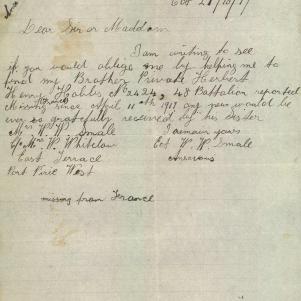 Oct 21/10/17
Dear Sir or Maddam
I am writing to see
if you would oblige me by helping me to
find my Brother Private Herbert
Henry Hobbs No 2424, 48 Battalion reported
Missing since April 11th 1917 any news would be
France
ever so gratefully received by his sister
Mrs W. W. Small I remain yours
C/o Mrs W. Whitelaw Ect W. W. Small
East Terrace anxious
Port Pirie West
missing from France